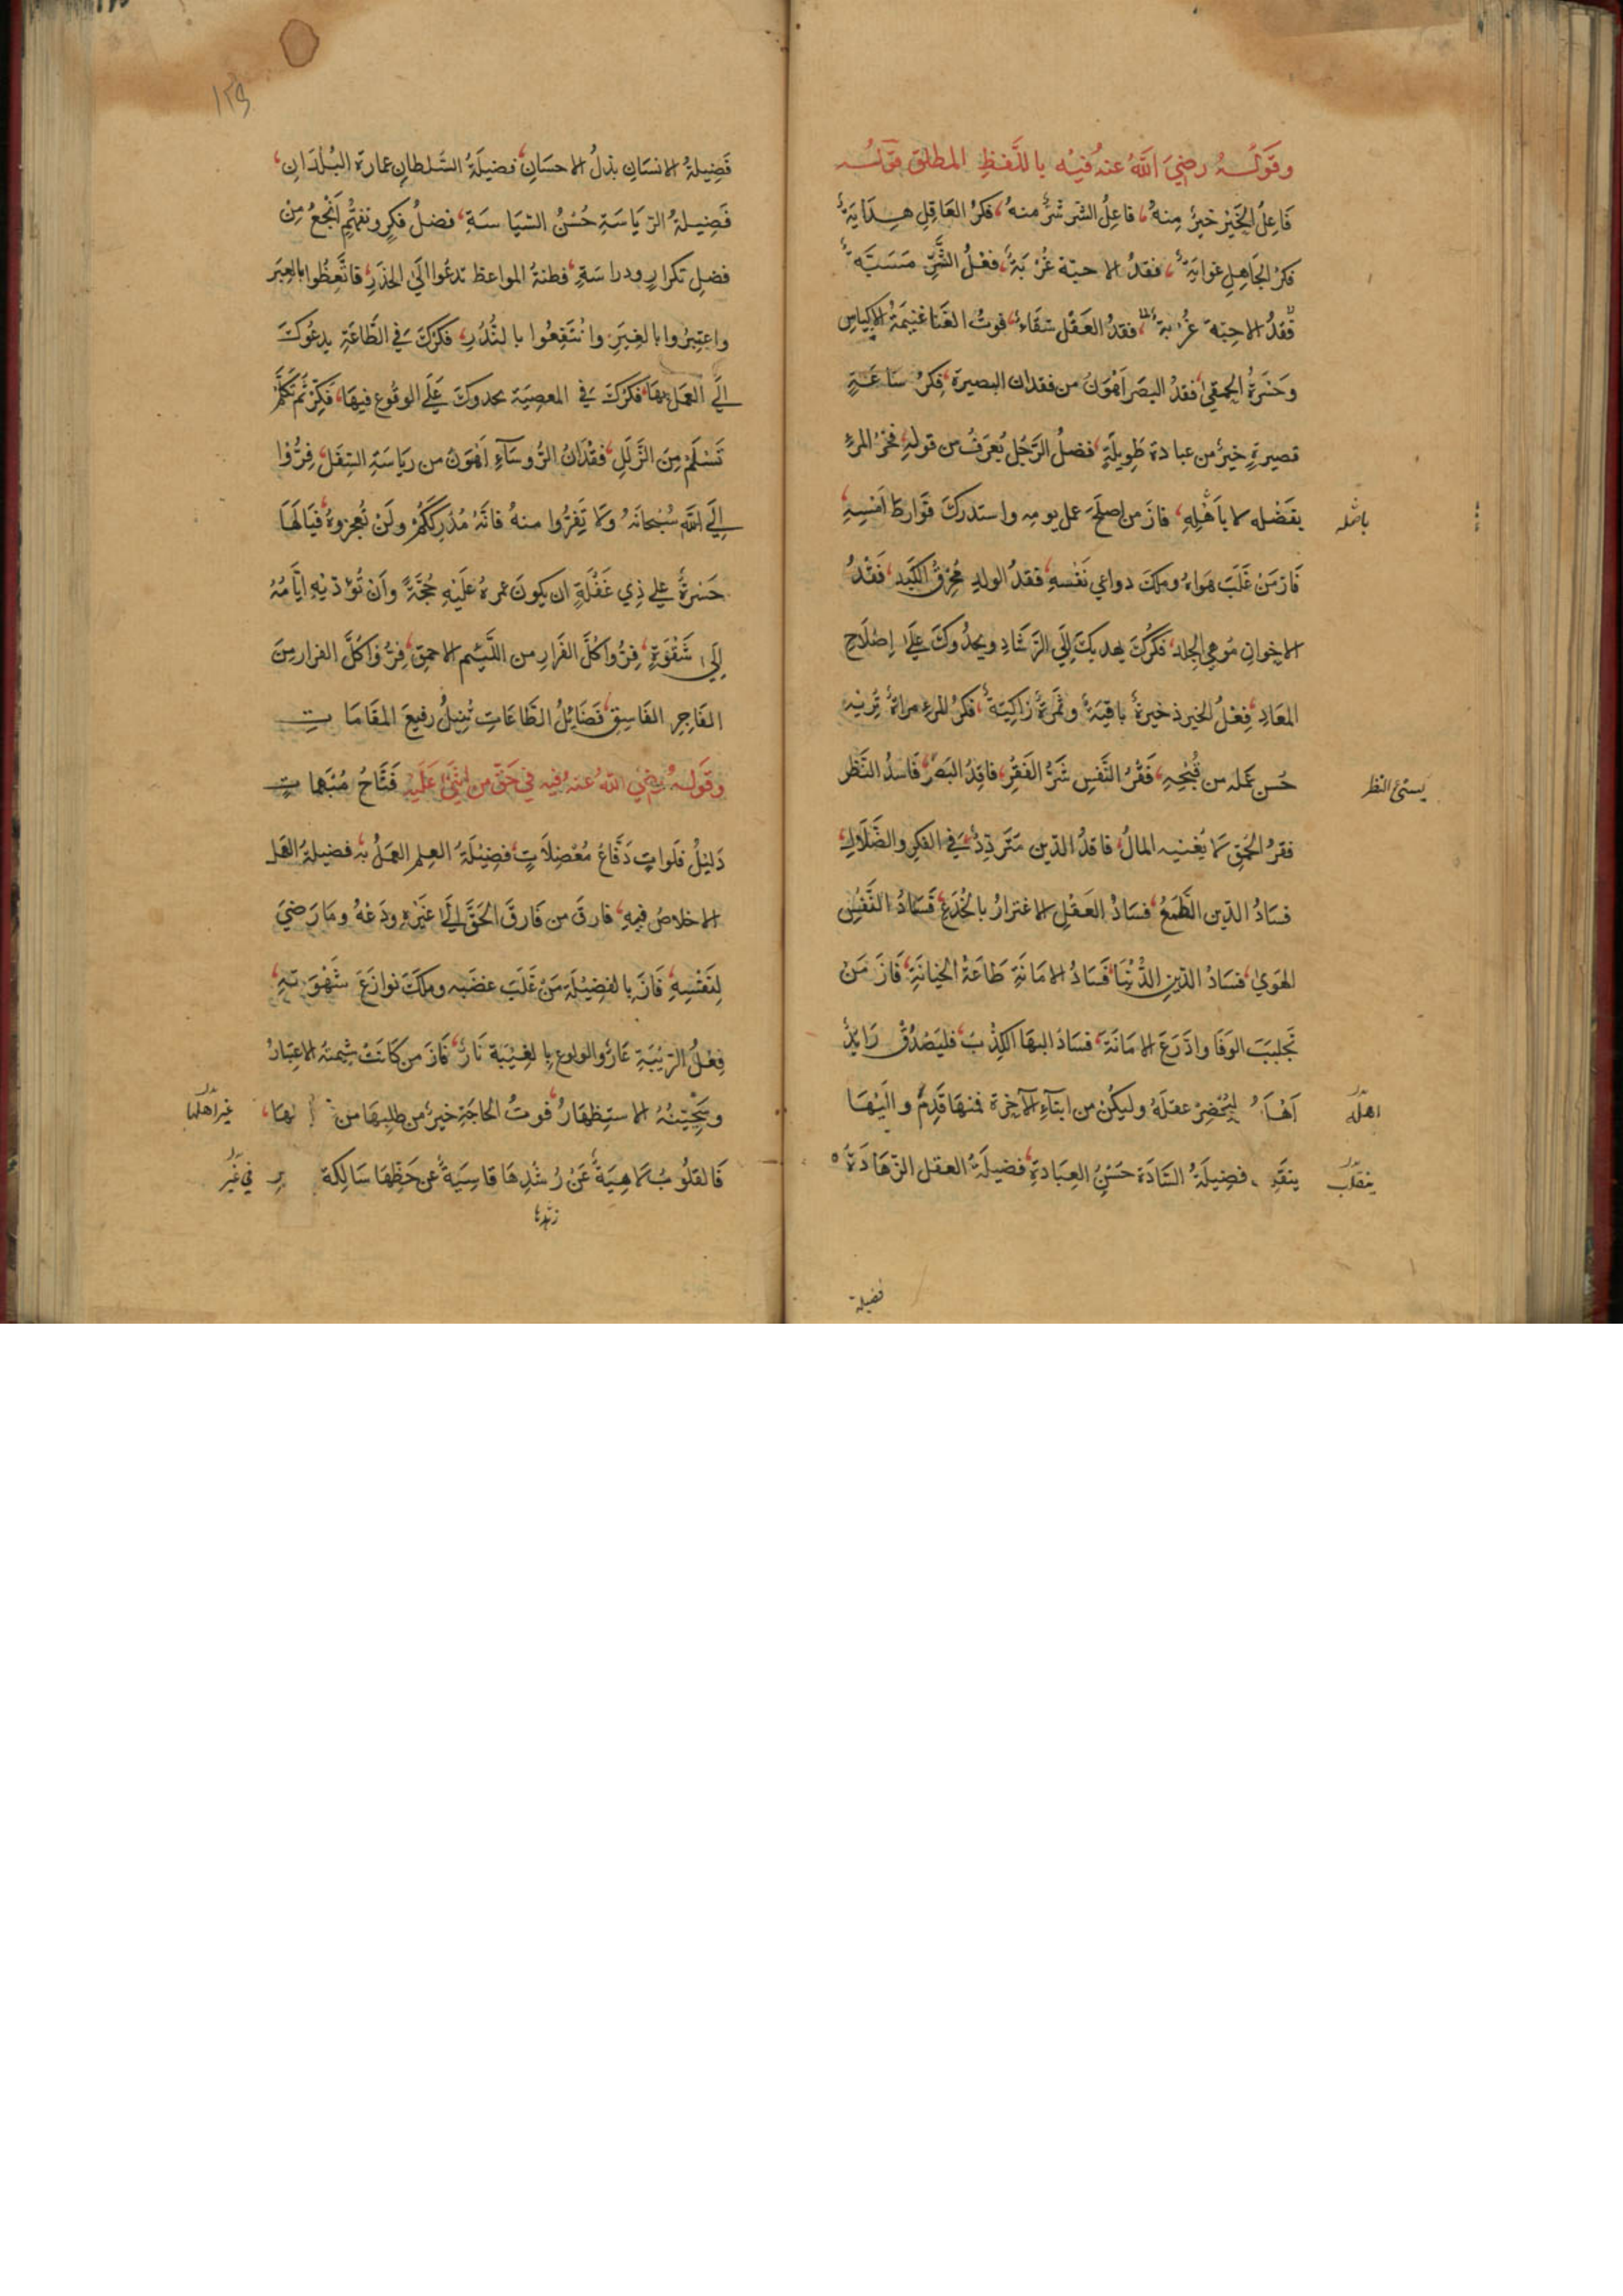 وقوله رضي الله عنه فيه باللفظ المطلق قوله
فَاعِلُ الخَيْر خيرٌ مِنهُ، فاعِلُ الشّر شرٌّ منهُ، فكرُ العَاقِلِ هِدَايَةٌ
فكرُ الجَاهِلِ غوايَةٌ، فقدُ الاحبّة غُرْبَةٌ، فعْلُ الشَّرِّ مَسَبَّةٌ
فقدُ الاحبّة غُرْبة، فقدُ العَقْل شقَاءٌ، فوتُ الغَنَا غنيمَةُ الاكياسِ
وَحَسْرَةُ الحمقى، فقدُ البصَر اَهْوَنُ من فقدان البصيرة، فِكرُ سَاعَةٍ
قصيرةٍ خيرٌ من عبادة طَوِيلَةٍ، فضلُ الرَّجُل يُعرَفُ من قولهِ، فخرُ المرءِ
باصله
بفَضْله لا بأهْلِهِ، فازَ من اصلَحَ عمل يومِه واستدركَ فَوَارطَ اَمْسِهِ،
فَازَ مَنْ غَلَبَ هَوَاهُ وملكَ دواعي نَفْسهِ، فقدُ الولدِ مُحْرِقُ الكَبِد، فَقْدُ
الاخوانِ مُوهي الجلد، فكْرُكَ يهديكَ اِلَى الرَّشَادِ ويحدُوكَ عَلَى اِصْلَاحِ
المعَادِ، فِعْلُ الخير ذخيرةٌ باقيَةٌ وثَمَرةٌ زَاكِيَةٌ، فكرُ المرءِ مراةٌ تُرِيْه
حُسن عَمَله من قُبْحِهِ، فَقْرُ النَّفسِ شَرُّ الفَقْرِ، فاقِدُ البَصَر، فَاسدُ النَّظَر
يسئ النظر
فقرُ الحُمقِ لَا يُغنيه المالُ، فاقدُ الدّين مَتَردِّدٌ فِي الفكرِ والضَّلَالِ،
فسَادُ الدّين الطَّمَعُ، فسَادُ العَقْلِ الاغترارُ بالخُدَعِ، فَسَادُ النَّفْسِ
الهَوَى، فسَادُ الدّينِ الدُّنْيَا، فَسَادُ الامَانَةِ طَاعَةُ الخيانَةِ، فَازَ مَنْ
تَجلبَبَ الوَفَا وادَّرَعَ الامَانَةَ، فسَادُ البهَا الكذْبُ، فليَصْدُقْ رَايدٌ
اهله
ليُحْضِرْ عقلَهُ وليكُنْ من ابنآءِ الآخِرَة فمنهَا قَدِمَ واليْهَا
ينقلب
فضِيلَةُ السَّادَة حَسْنُ العِبَادَةِ، فضيلَةُ العقل الزّهَادَةُ
فضيلة
١٢٩
فَضِيلةُ الانسَانِ بذلُ الاحسَانِ، فضيلَةُ السُّلطانِ عمارة البُلْدَانِ،
فَضِيلةُ الرّيَاسَةِ حُسْنُ السّيَاسَةِ، فضلُ فكرٍ وتفهُّمٍ اَنجعُ مِنْ
فضل تكرارٍ ودراسَةٍ، فطنةُ المواعظ تدعُوا الَى الحذَرِ، فاتَّعِظُوا بالعِبَر
واعتبِرُوا بالغِيَرِ وانْتَفِعُوا بالنُّذُرِ، فكْرُكَ في الطَّاعَةِ يدعُوكَ
الَى العَمَل بهَا، فكْرُكَ في المعصِيَة يحدوكَ عَلَى الوقُوعِ فيهَا، فَكِّرْ ثُمَّ تَكَلَّمْ
تَسْلَمْ مِنَ الزَّلَلِ، فقْدَانُ الرُّوسَآءِ اَهْوَنُ من رِيَاسَةِ السِّفَلِ، فِرُّوْا
اِلَى اللّٰهِ سُبْحَانَهُ وَلَا تَفِرُّوا منهُ فانَّهُ مُدْرِكُكُمْ ولَنْ تُعجزوهُ، فَيَالَهَا
حَسْرةً على ذِي غَفْلَةٍ ان يكونَ عمرهُ عَلَيْهِ حُجَّةً وَاَنْ تُؤدّيْهِ ايَّامُهُ
اِلَى شَقْوَةٍ، فِرُّوا كُلَّ الفرَارِ من اللَّئِيْم الاحمَقِ، فِرُّوا كُلَّ الفرار مِنَ
الفَاجِرِ الفَاسِقِ، فَضَائِلُ الطَّاعَاتِ تُنِيلُ رفيعَ المقَامَاتِ
وقَوله رضي الله عنه فيه في حَقّ من اَثْنَى عَلَيه فَتَّاحُ مُبْهَمَاتٍ
دَليْلُ فلَواتٍ دَفَّاعُ مُعْضِلَاتٍ، فَضِيْلَةُ العِلم العَمَلُ به، فضيلةُ العَمَل
الاخلاصُ فيهِ، فارقْ من فَارقَ الحَقَّ اِلَى غَيْرِهِ ودَعْهُ ومَا رَضِيَ
لِنَفْسِهِ، فَازَ بالفضِيْلَة مَنْ غَلَبَ غضَبه وملكَ نوازِعَ شَهْوَتهِ،
فِعْلُ الرّيْبَةِ عَارٌ والولوعِ بالغِيْبَة نَارٌ، فَازَ من كَانَتْ شيمتهُ الاعتِبَارُ
وسَجِيَّتُهُ الاستِظهَارُ، فوتُ الحاجَةِ خيرٌ من طلبهَا من
غير اهلها
فَالقلُوبُ لَاهِيَةٌ عَنْ رُشْدِهَا قاسِيَةٌ عَن حَظِّهَا سَالِكة
في غير